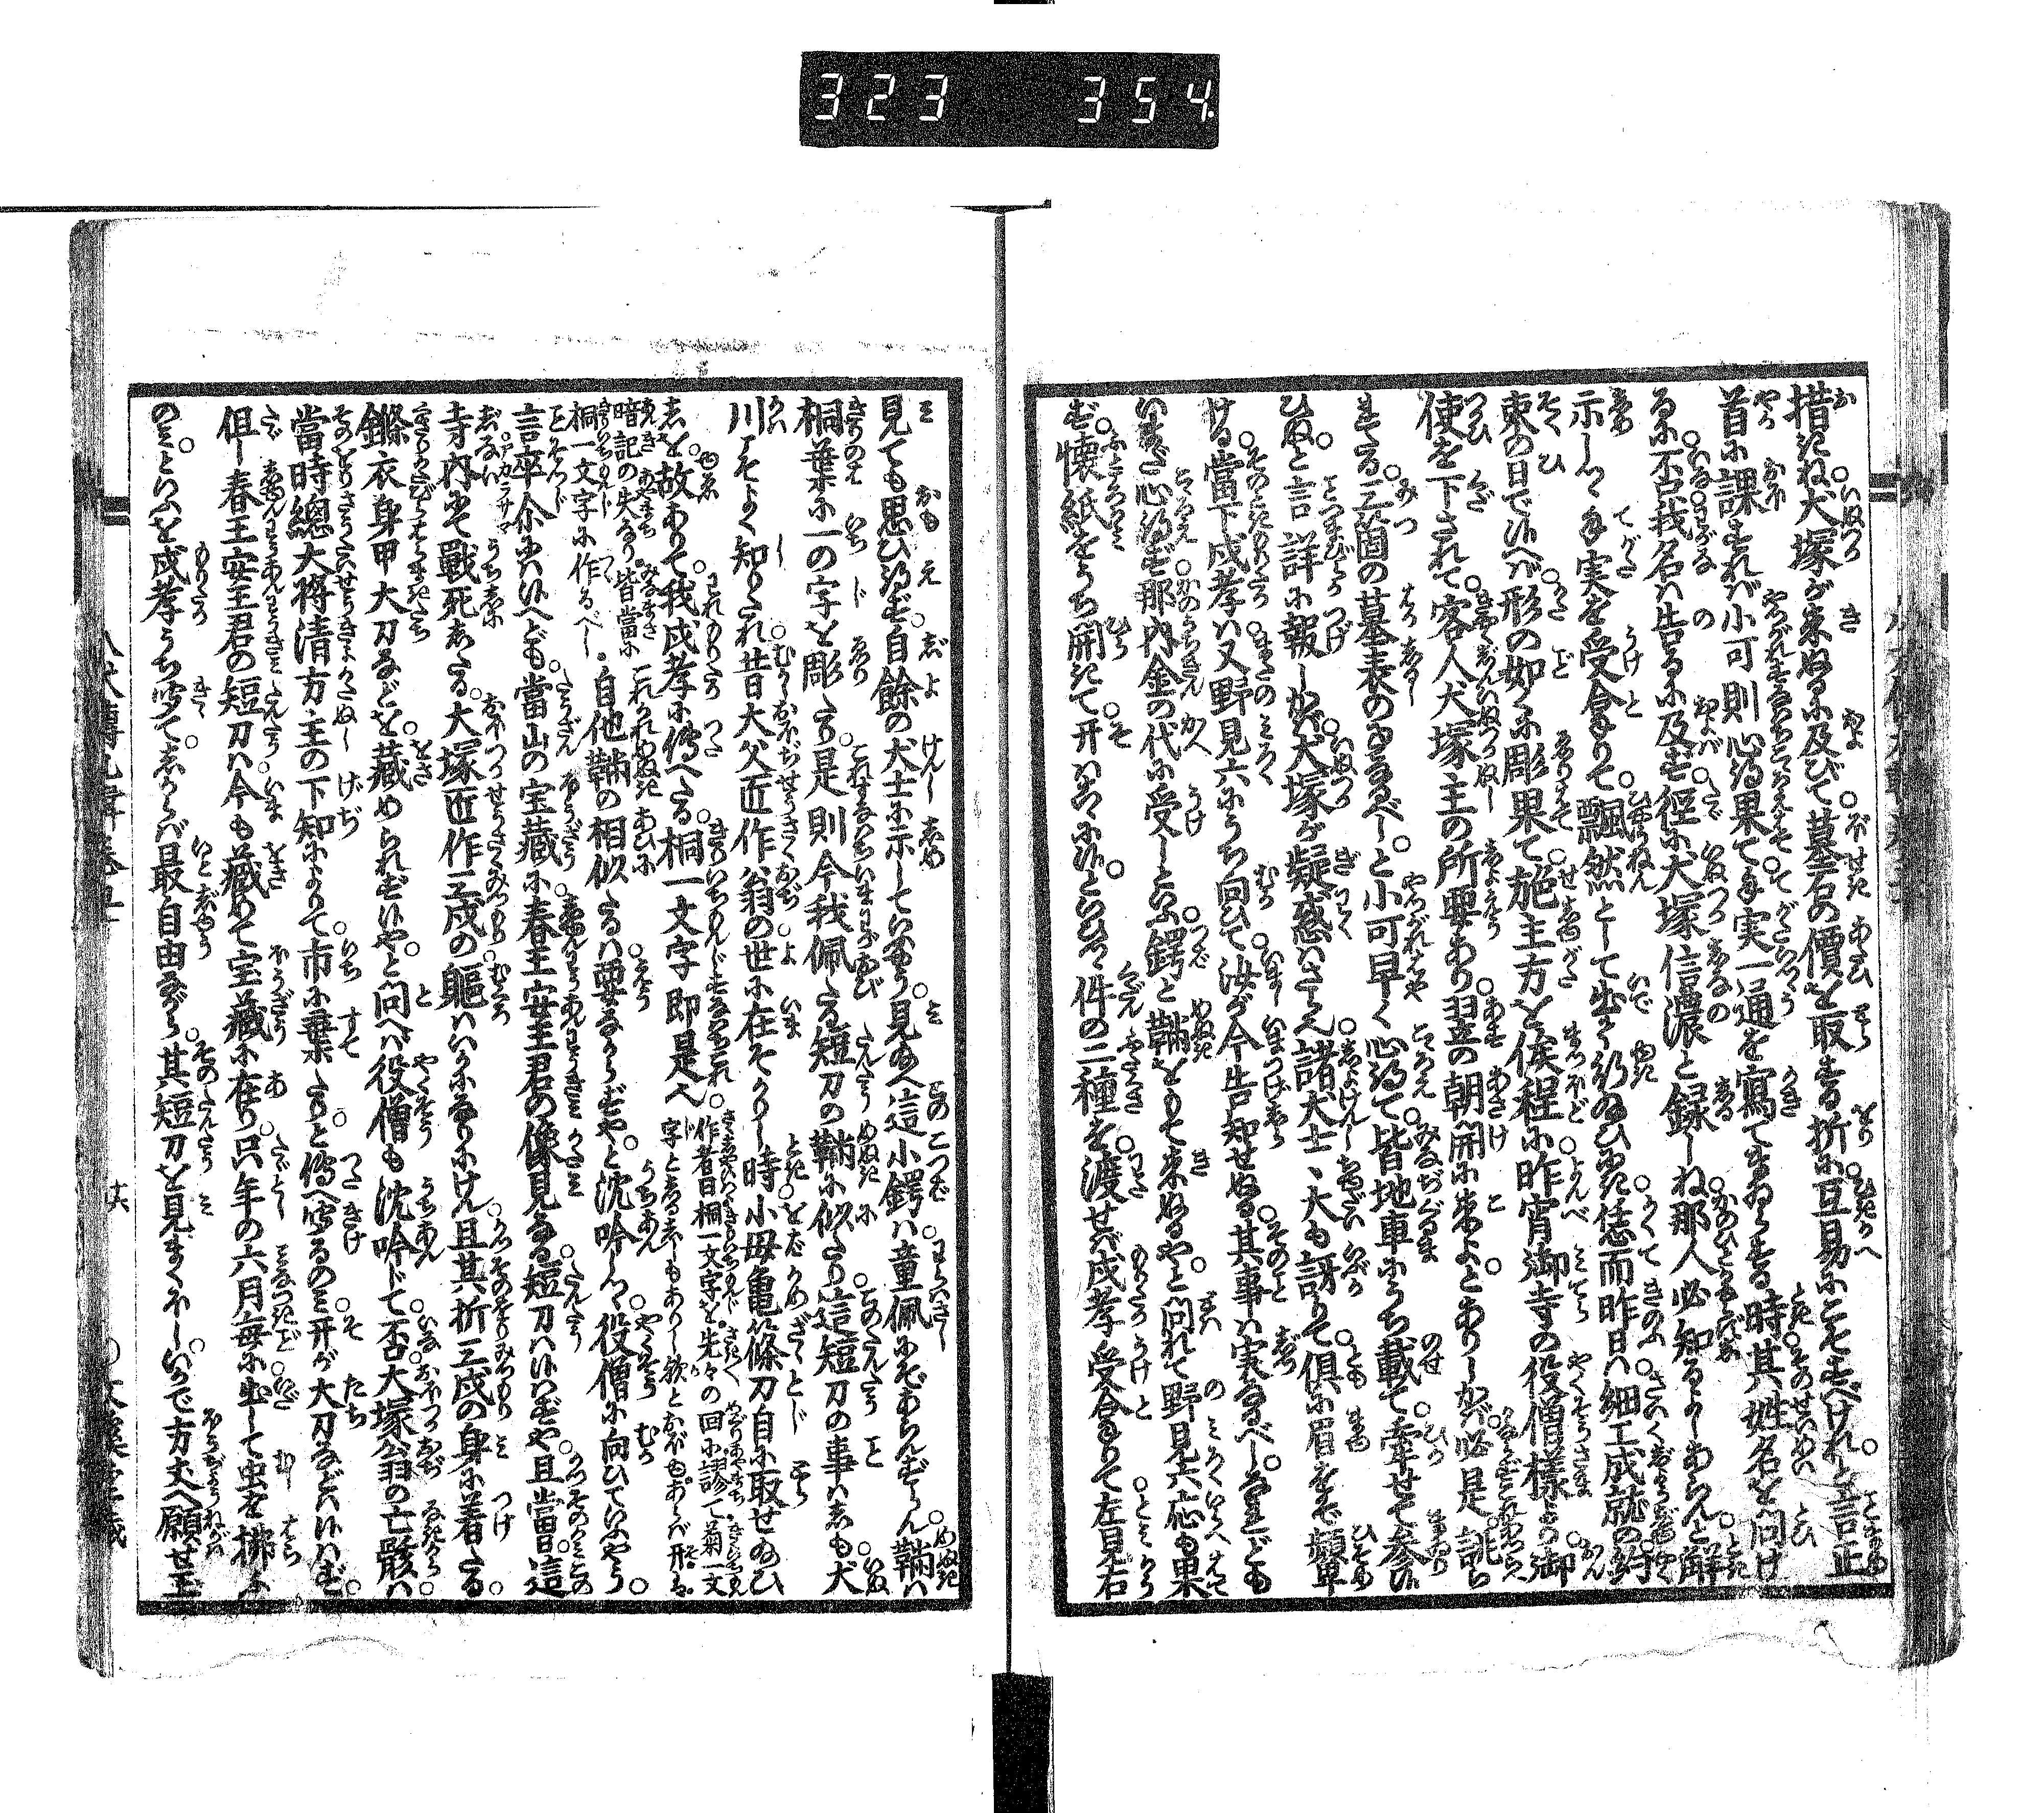 323 354
措きね犬塚が来ぬるに及びて墓石の價を取する折に亙易にこそすべけれと言正
首に課すれバ小可則心得果て手実一通を寫てまゐらする時其姓名を問け
るに否我名ハ告るに及ず徑に犬塚信濃と録しね那人必知るよしあらんと解
示しつゝ手実を受合りて飄然として出て行ゐひにき恁而昨日ハ細工成就の約
束の日で候へバ形の如くに彫果て施主方を俟程に昨宵御寺の役僧様より御
使を下されて客人犬塚主の所要あり翌の朝開に来よとありしかバ必是誂ら
まうたる三箇の墓表のゆゑなるべしと小可早く心得て皆地車にうち載て牽せて参り
ひぬと言詳に報しかバ犬塚が疑惑ハさら也諸犬士丶大も訝りて倶に眉をぞ顰
せる當下戌孝ハ又野見六にうち向ひて汝が今告知せぬる其事ハ実なるべしなれども
いまだ心得ず那内金の代に受しといふ鍔と鞆をもて来ぬるやと問れて野見六応も果
ず懐紙をうち開きて开ハ爰に候といひつゝ件の二種を渡せバ戌孝受合りて左見右
見ても思ひ得ず自餘の犬士に示していふやう見給へ這小鍔ハ童佩にぞあらんずらん鞆ハ
桐葉に一の字を彫たり是則今我佩たる短刀の鞆に似たり這短刀の事ハしも犬
川こそよく知りたれ昔大父匠作翁の世に在そかりし時小母亀篠刀自に取せ給ひ
しを故ありて我戌孝に傳へたる桐一文字即是也
作者曰桐一文字を先々の回に謬て菊一文
字と者るしもありし欤とおぼゆあらバ开ハ
暗記の失なり皆當に
桐一文字に作るべし
自他鞆の相似たるハ要なからずやと沈吟しつゝ役僧に向ひていふやう
言卒尓にハ候へども當山の宝藏に春王安王君の像見なる短刀ハ候ハずや且當日這
寺内にて戰死したる大塚匠作三戌の軀ハいかになりにけん且其折三戌の身に着たる
鎩衣身甲大刀などを藏められずや候と問へバ役僧も沈吟じて否大塚翁の亡骸ハ
當時總大將清方主の下知によりて市に棄たりと傳へ聞るのミ开が大刀などハ候ハず
但し春王安王君の短刀ハ今も藏めて宝藏に在り只年の六月毎に出して虫を拂ふ
のミといふを戌孝うち聞てしからバ最自由ながら其短刀を見まくほしいかで方丈へ願せ玉
八犬傳九輯卷五十
十六